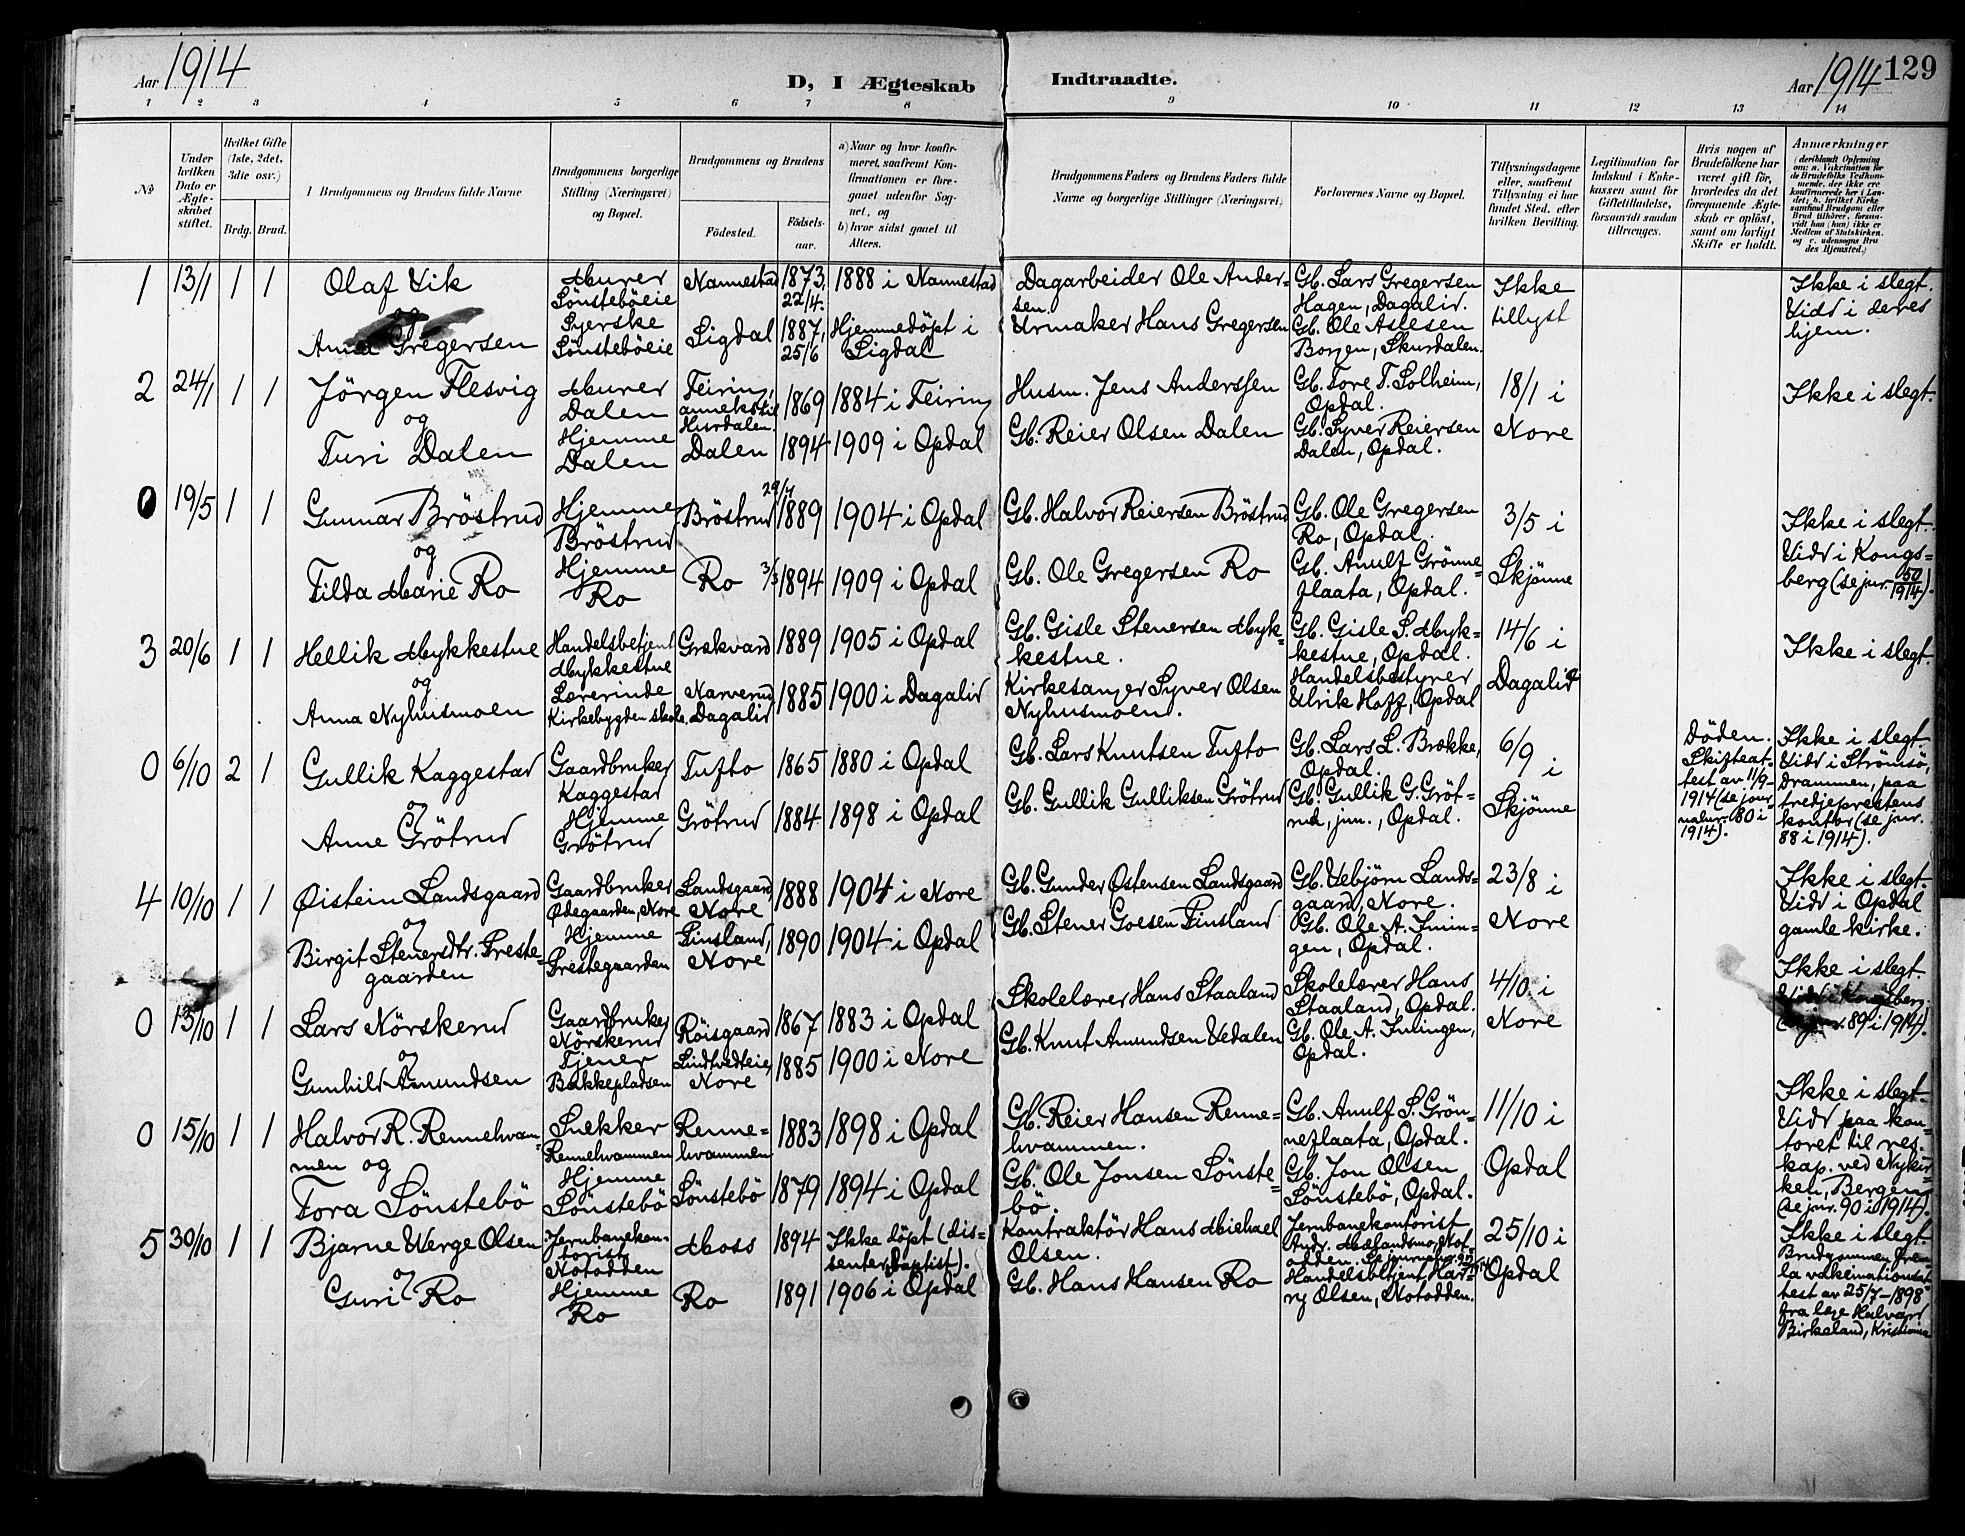 Aar 1914
D, I Ægteskab
Indtraadte.
Aar 1914 129
1 2 3 4 5 6 7 8 9 10 11 12 13 14
No
Under hvilken Dato er Ægteskabet stiftet.
Hvilket Gifte (1ste, 2det, 3die osv.)
Brdg. Brud.
I Brudgommens og Brudens fulde Navne
Brudgommens borgerlige Stilling (Næringsvei) og Bopæl.
Brudgommens og Brudens
Fødested.
Fødselsaar.
a) Naar og hvor konfirmeret, saafremt Konfirmationen er foregaaet udenfor Sognet, og
b) hvor sidst gaaet til Alters.
Brudgommens Faders og Brudens Faders fulde Navne og borgerlige Stillinger (Næringsvei)
Forlovernes Navne og Bopæl.
Tillysningsdagene eller, saafremt Tillysning ei har fundet Sted, efter hvilken Bevilling.
Legitimation for Indskud i Enkekassen samt for Giftetilladelse, forsaavidt saadan tiltrænges.
Hvis nogen af Brudefolkene har været gift før, hvorledes da det foregaaende Ægteskab er opløst, samt om lovligt Skifte er holdt.
Anmærkninger
(deriblandt Oplysning om: a. Vakcination for de Brudefolks Vedkommende, der ikke ere konfirmerede her i Landet; b. hvilket Kirkesamfund Brudgom eller Brud tilhører, forsaavidt han (hun) ikke er Medlem af Statskirken, og c. udensogns Brudes Hjemsted.)
1 13/1 1 1 Olaf Vik
og
Anna Gregersen
Murer
Sönstebøeie
Syerske
Sönstebøeie
Nannestad
Sigdal
1873, 22/4.
1887, 25/6
1888 i Nannestad
Hjemmedöpt i
Sigdal
Dagarbeider Ole Andersen.
Urmaker Hans Gregersen
Gb. Lars Gregersen
Hagen, Dagalid.
Gb. Ole Aslesen
Borgen, Skurdalen.
Ikke
tillyst
Ikke i slegt.
Vidd i deres
hjem.
2 24/1 1 1 Jörgen Flesvig
og
Turi Dalen
Murer
Dalen
Hjemme
Dalen
Feiring,
anneks til
Hurdalen.
Dalen
1869
1894
1884 i Feiring
1909 i Opdal
Husm. Jens Anderssen
Gb. Reier Olsen Dalen
Gb. Tore T. Solheim,
Opdal.
Gb. Syver Reiersen
Dalen, Opdal.
18/1 i
Nore
Ikke i slegt.
0 19/5 1 1 Gunnar Bröstrud
og
Tilda Marie Ro
Hjemme
Bröstrud
Hjemme
Ro
Bröstrud
Ro
29/7
1889
3/3 1894
1904 i Opdal
1909 i Opdal
Gb. Halvor Reiersen Bröstrud
Gb. Ole Gregersen Ro
Gb. Ole Gregersen
Ro, Opdal.
Gb. Anulf Grönneflaata, Opdal.
3/5 i
Skjönne
Ikke i slegt.
Vidd i Kongsberg (se jnr. 50/1914).
3 20/6 1 1 Hellik Mykkestue
og
Anna Nyhusmoen
Handelsbetjent
Mykkestue
Lærerinde
Kirkebygden skole.
Grækvard
Narverud
Dagalid
1889
1885
1905 i Opdal
1900 i Dagalid
Gb. Gisle Stenersen Mykkestue.
Kirkesanger Syver Olsen
Nyhusmoen.
Gb. Gisle S. Mykkestue, Opdal.
Handelsbestyrer
Ulrik Hoff, Opdal
14/6 i
Dagalid
Ikke i slegt.
0 6/10 2 1 Gullik Kaggestad
og
Anne Grötrud
Gaardbruker
Kaggestad
Hjemme
Grötrud
Tufto
Grötrud
1865
1884
1880 i Opdal
1898 i Opdal
Gb. Lars Knutsen Tufto
Gb. Gullik Gulliksen Grötrud
Gb. Lars L. Brække,
Opdal.
Gb. Gullik G. Grötrud, jun., Opdal.
6/9 i
Skjönne
Döden.
Skifteattest av 11/9-
1914 (se journalnr. 80 i
1914).
Ikke i slegt.
Vidd i Strömsö,
Drammen, paa
tredjeprestens
kontor (se jnr.
88 i 1914).
4 10/10 1 1 Øistein Landsgaard
og
Birgit Stenersdtr. Prestegaarden
Gaardbruker
Ødegaarden, Nore
Hjemme
Prestegaarden
Landsgaard,
Nore
Finsland,
Nore
1888
1890
1904 i Nore
1904 i Opdal
Gb. Gunder Østensen Landsgaard
Gb. Stener Goesen Finsland
Gb. Vebjörn Landsgaard, Nore.
Gb. Ole A. Imingen, Opdal.
23/8 i
Nore
Ikke i slegt.
Vidd i Opdal
gamle kirke.
0 13/10 1 1 Lars Nörskerud
og
Gunhild Amundsen
Gaardbruker
Nörskerud
Tjener
Bakkepladsen
Röisgaard
Lindtvedteie,
Nore
1867
1885
1883 i Opdal
1900 i Nore
Skolelærer Hans Staaland
Gb. Knut Amundsen Vedalen
Skolelærer Hans
Staaland, Opdal.
Gb. Ole A. Imingen,
Opdal.
4/10 i
Nore
Ikke i slegt.
Vidd i Kongsberg.
89 i 1914).
0 15/10 1 1 Halvor R. Rennehvammen og
Tora Sönstebö
Snekker
Rennehvammen
Hjemme
Sönstebö
Rennehvammen
Sönstebö
1883
1879
1898 i Opdal
1894 i Opdal
Gb. Reier Hansen Rennehvammen.
Gb. Ole Jonsen Sönstebö.
Gb. Anulf S. Grönneflaata, Opdal.
Gb. Jon Olsen
Sönstebö, Opdal.
11/10 i
Opdal
Ikke i slegt.
Vidd paa kontoret til res.
kap. ved Nykirken, Bergen
(se jnr. 90 i 1914).
5 30/10 1 1 Bjarne Werge Olsen
og
Guri Ro
Jernbanekontorist
Notodden
Hjemme
Ro
Moss
Ro
1894
1891
Ikke döpt (dissenter, Baptist).
1906 i Opdal
Kontraktör Hans Michael
Olsen.
Gb. Hans Hansen Ro
Jernbanekontorist
Andr. Mælandsmo, Notodden.
Handelsbetjent Harry Olsen, Notodden.
25/10 i
Opdal
Ikke i slegt.
Brudgommen fremla vakcinationsattest av 25/7-1898
fra læge Halvard
Birkeland, Kristiania